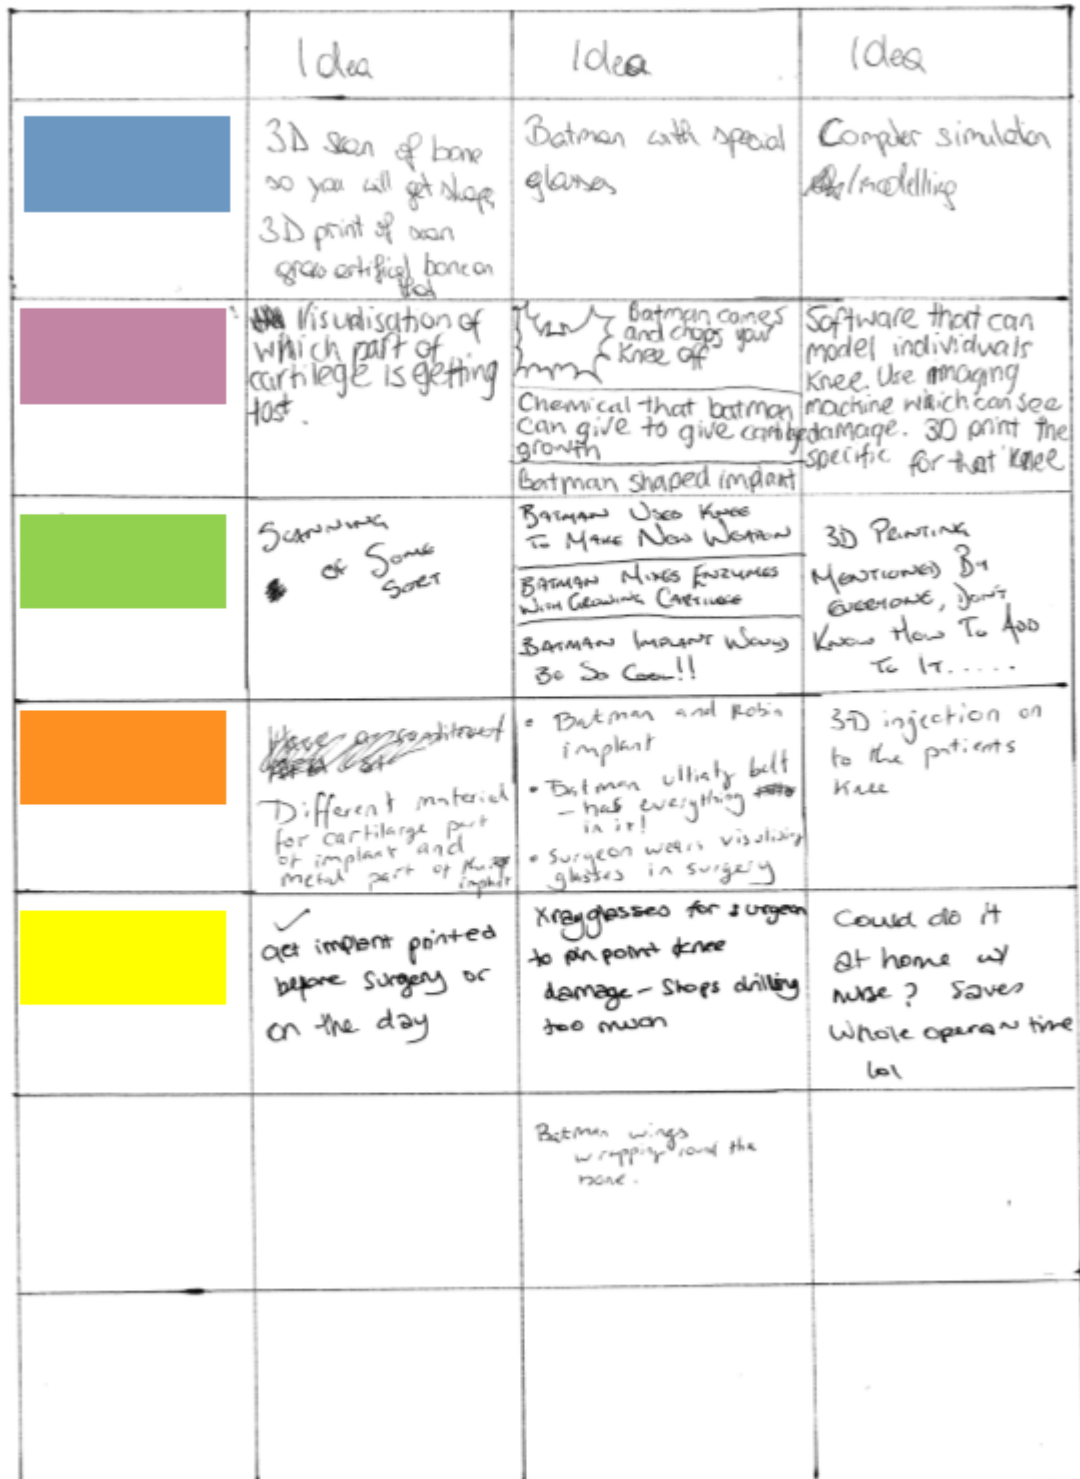 Idea
Idea
Idea
3D scan of bone
so you will get shape
3D print of scan
grow artifical bone on
that
Batman with special
glasses
Computer simulation
/modelling
Visualisation of
which part of
cartilege is getting
lost.
Batman comes
and chops your
Knee off
Chemical that batman
can give to give cartilege
growth
Batman shaped implant
Software that can
model individuals
Knee. Use imaging
machine which can see
damage. 3D print the
specific for that knee
SCANNING
OF SOME
SORT
BATMAN USED KNEE
TO MAKE NEW WEAPON
BATMAN MIXES ENZYMES
WITH GROWING CARTILEGE
BATMAN IMPLANT WOULD
BE SO COOL!!
3D PRINTING
MENTIONED BY
EVERYONE, DON'T
KNOW HOW TO ADD
TO IT.....
Different material
for cartilarge part
of implant and
metal part of
implant
• Batman and Robin
implant
• Batman ultiaty belt
- has everything
in it!
• Surgeon wears visulising
glasses in surgery
3-D injection on
to the patients
Knee
✓
Get implant printed
before surgery or
on the day
Xray glasses for surgeon
to pin point knee
damage - Stops drilling
too much
Could do it
at home w/
nurse? Saves
Whole operan time
lol
Batman wings
wrapping round the
bone.